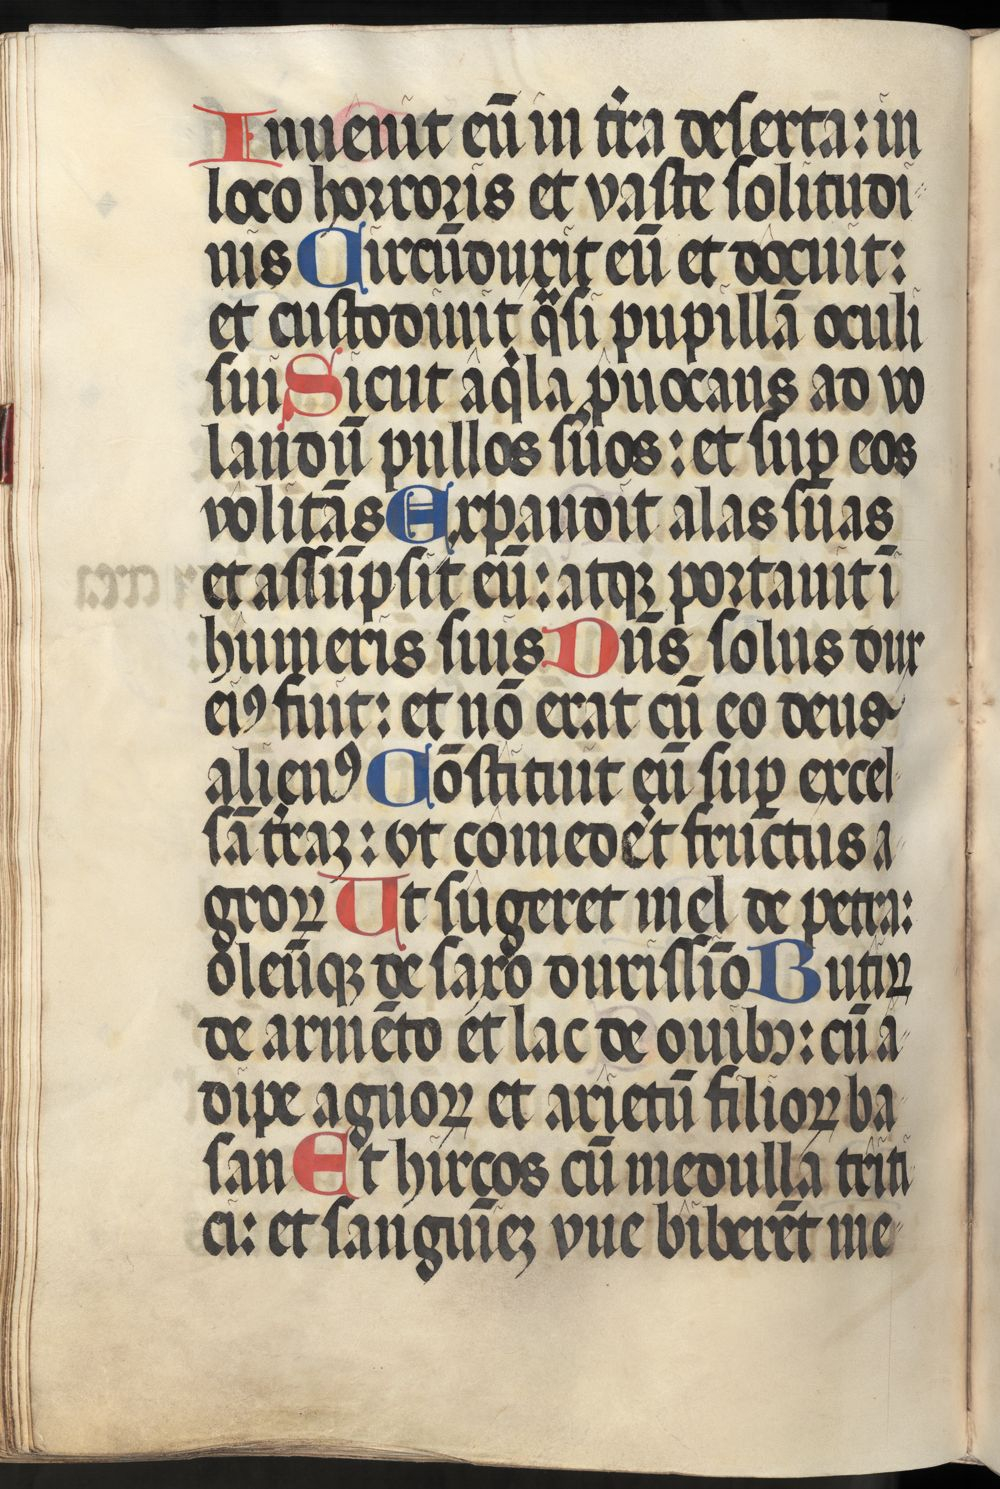 Inuenit eū in tr̄a deserta: in
loco horroris et vaste solitudi
nis Circūduxit eū et docuit:
et custodiuit q̄si pupillā oculi
sui Sicut aq̇la ꝓuocans ad vo
landū pullos suos: et suꝑ eos
volitās Expandit alas suas
et assūpsit eū: atqꝫ portauit ī
humeris suis Dn̄s solus dux
eiꝰ fuit: et nō erat cū eo deus
alienꝰ Cōstituit eū suꝑ excel
sā tr̄aꝫ: vt comederͭ fructus a
groꝝ Ut sugeret mel de petra:
oleūqꝫ de saxo durissīo Butiꝝ
de armēto et lac de ouibꝫ: cū a
dipe agnoꝝ et arietū filioꝝ ba
san Et hircos cū medulla triti
ci: et sanguīeꝫ vue biberēt me